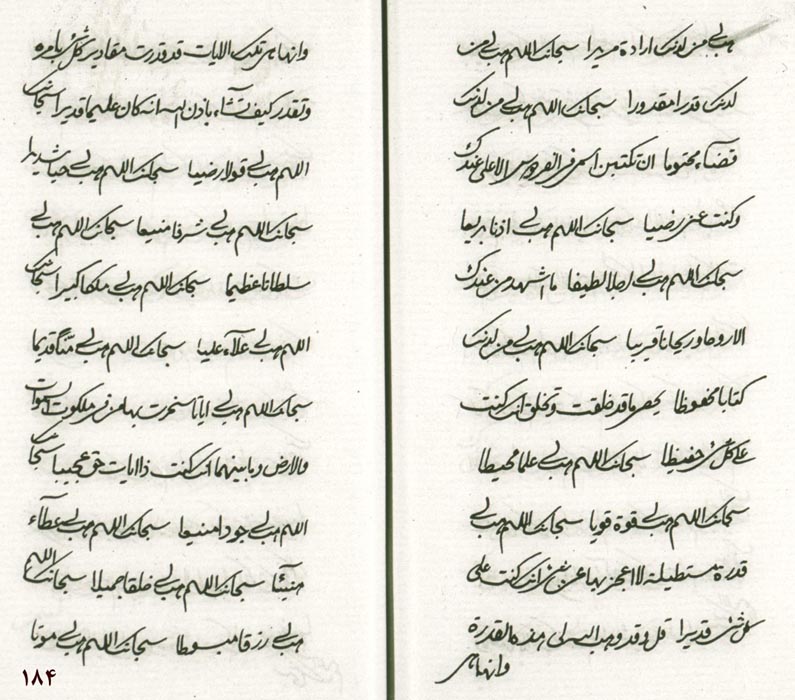 هب لي من لدنك ارادة مريدا سبحانك اللهم هب لي من
لدنك قدرا مقدورا سبحانك اللهم هب لي من لدنك
قضآء محتوما ان تكتبن اسمي في الفردوس الاعلى عندك
وكنت عني رضيا سبحانك اللهم هب لي اذنا بديعا
سبحانك اللهم هب لي اجلا لطيفا ما اشهد من عندك
الا روحا وريحانا قريبا سبحانك اللهم هب لي من لدنك
كتابا محفوظا يحصي ما قد خلقت وتخلق انك كنت
على كل شئ حفيظا سبحانك اللهم هب لي علما محيطا
سبحانك اللهم هب لي قوة قويا سبحانك اللهم هب لي
قدرة مستطيلة لا اعجز بها عن شئ انك كنت على
كل شئ قديرا قل وقد وهب الله لي هذه القدرة
وانها هي
وانها هي تلك الايات قد قدرت مقادير كل شئ بامره
وتقدر كيف تشآء باذن الله انه كان عليما قديرا سبحانك
اللهم هب لي قولا رضيا سبحانك اللهم هب لي حبا شديدا
سبحانك اللهم هب لي شرفا منيعا سبحانك اللهم هب لي
سلطانا عظيما سبحانك اللهم هب لي ملكا كبيرا سبحانك
اللهم هب لي علآء عليا سبحانك اللهم هب لي منّا قديما
سبحانك اللهم هب لي اياتا سخرت بها من في ملكوت السموات
والارض وما بينهما انك كنت ذا ايات حق عجيبا سبحانك
اللهم هب لي جودا منيعا سبحانك اللهم هب لي عطآء
هنيئا سبحانك اللهم هب لي خلقا جميلا سبحانك اللهم
هب لي رزقا مبسوطا سبحانك اللهم هب لي موتا
۱۸۴